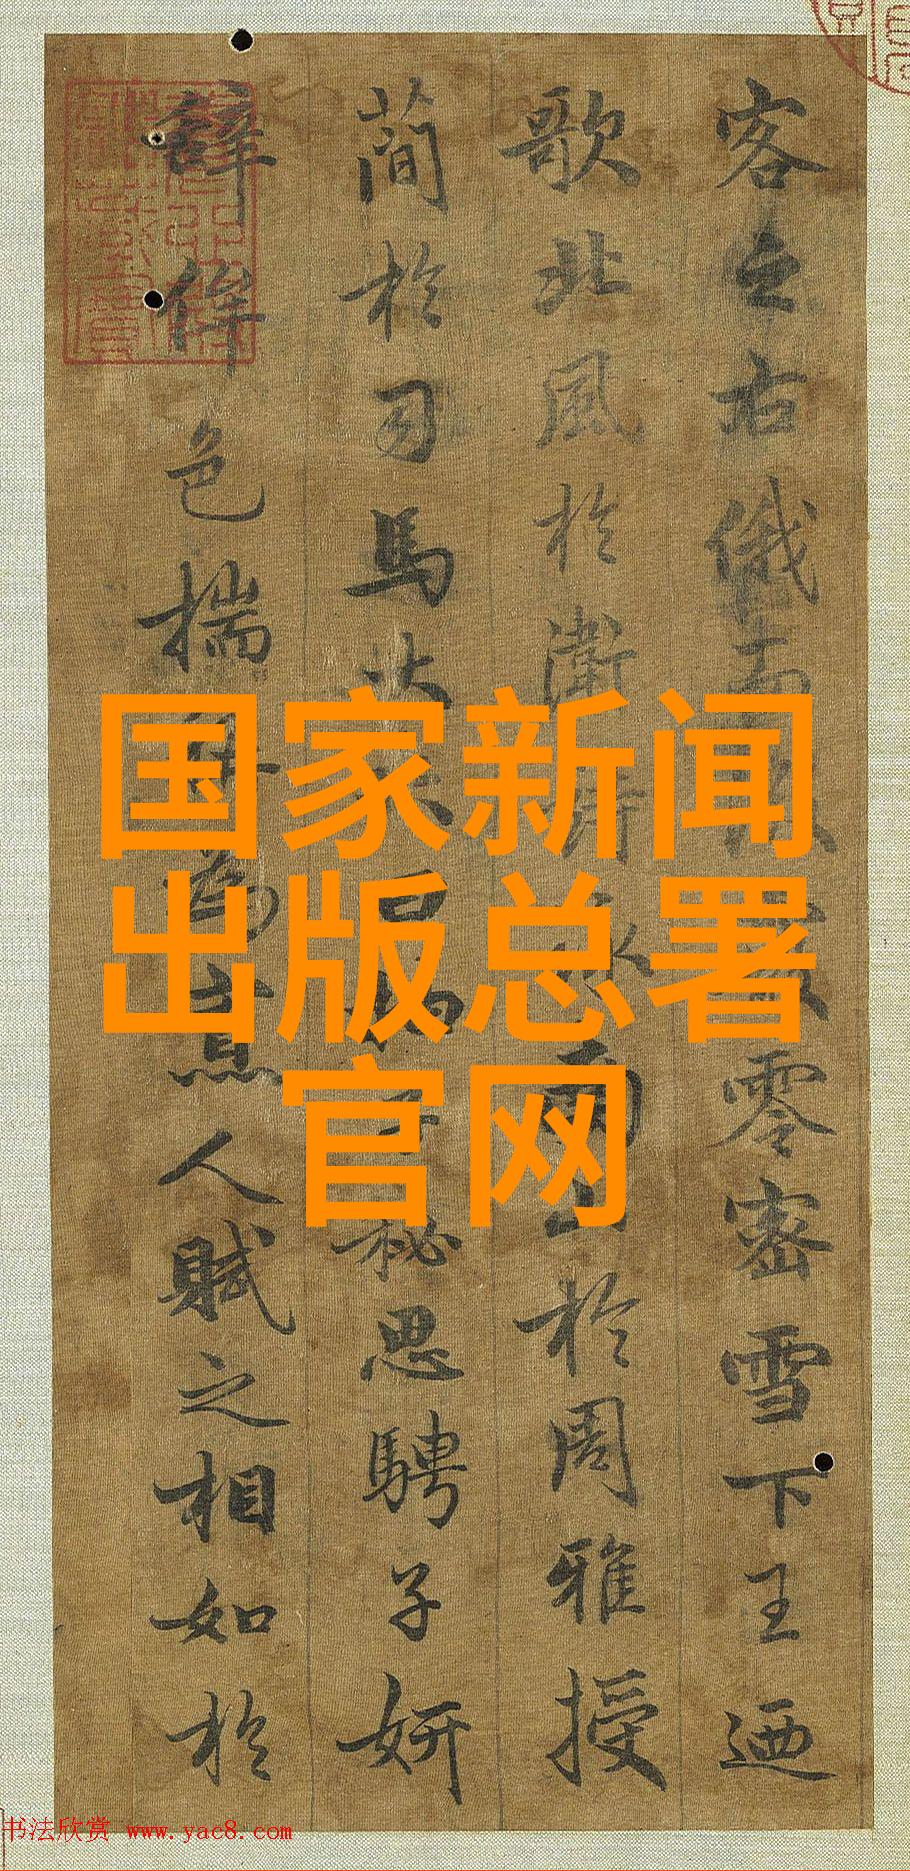 客之右俄而零密雪下王迺
歌北風於衛南山於周雅授
簡於司馬大秘思騁子妍
辭侔色揣為人賦之相如於
国家新闻
出版总署
官网
书法欣赏 www.yac8.com